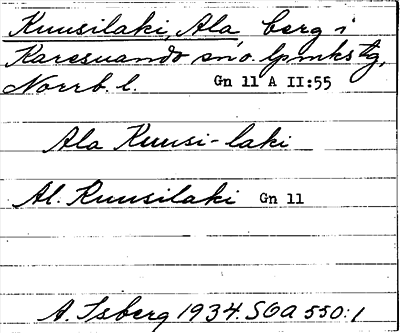 Kuusilaki, Ala berg i
Karesuando sn o. lpmkstg,
Norrb. l. Gn 11 A II:55
Ala Kuusi-laki
Al. Kuusilaki Gn 11
A. Isberg 1934. SOA 550:1